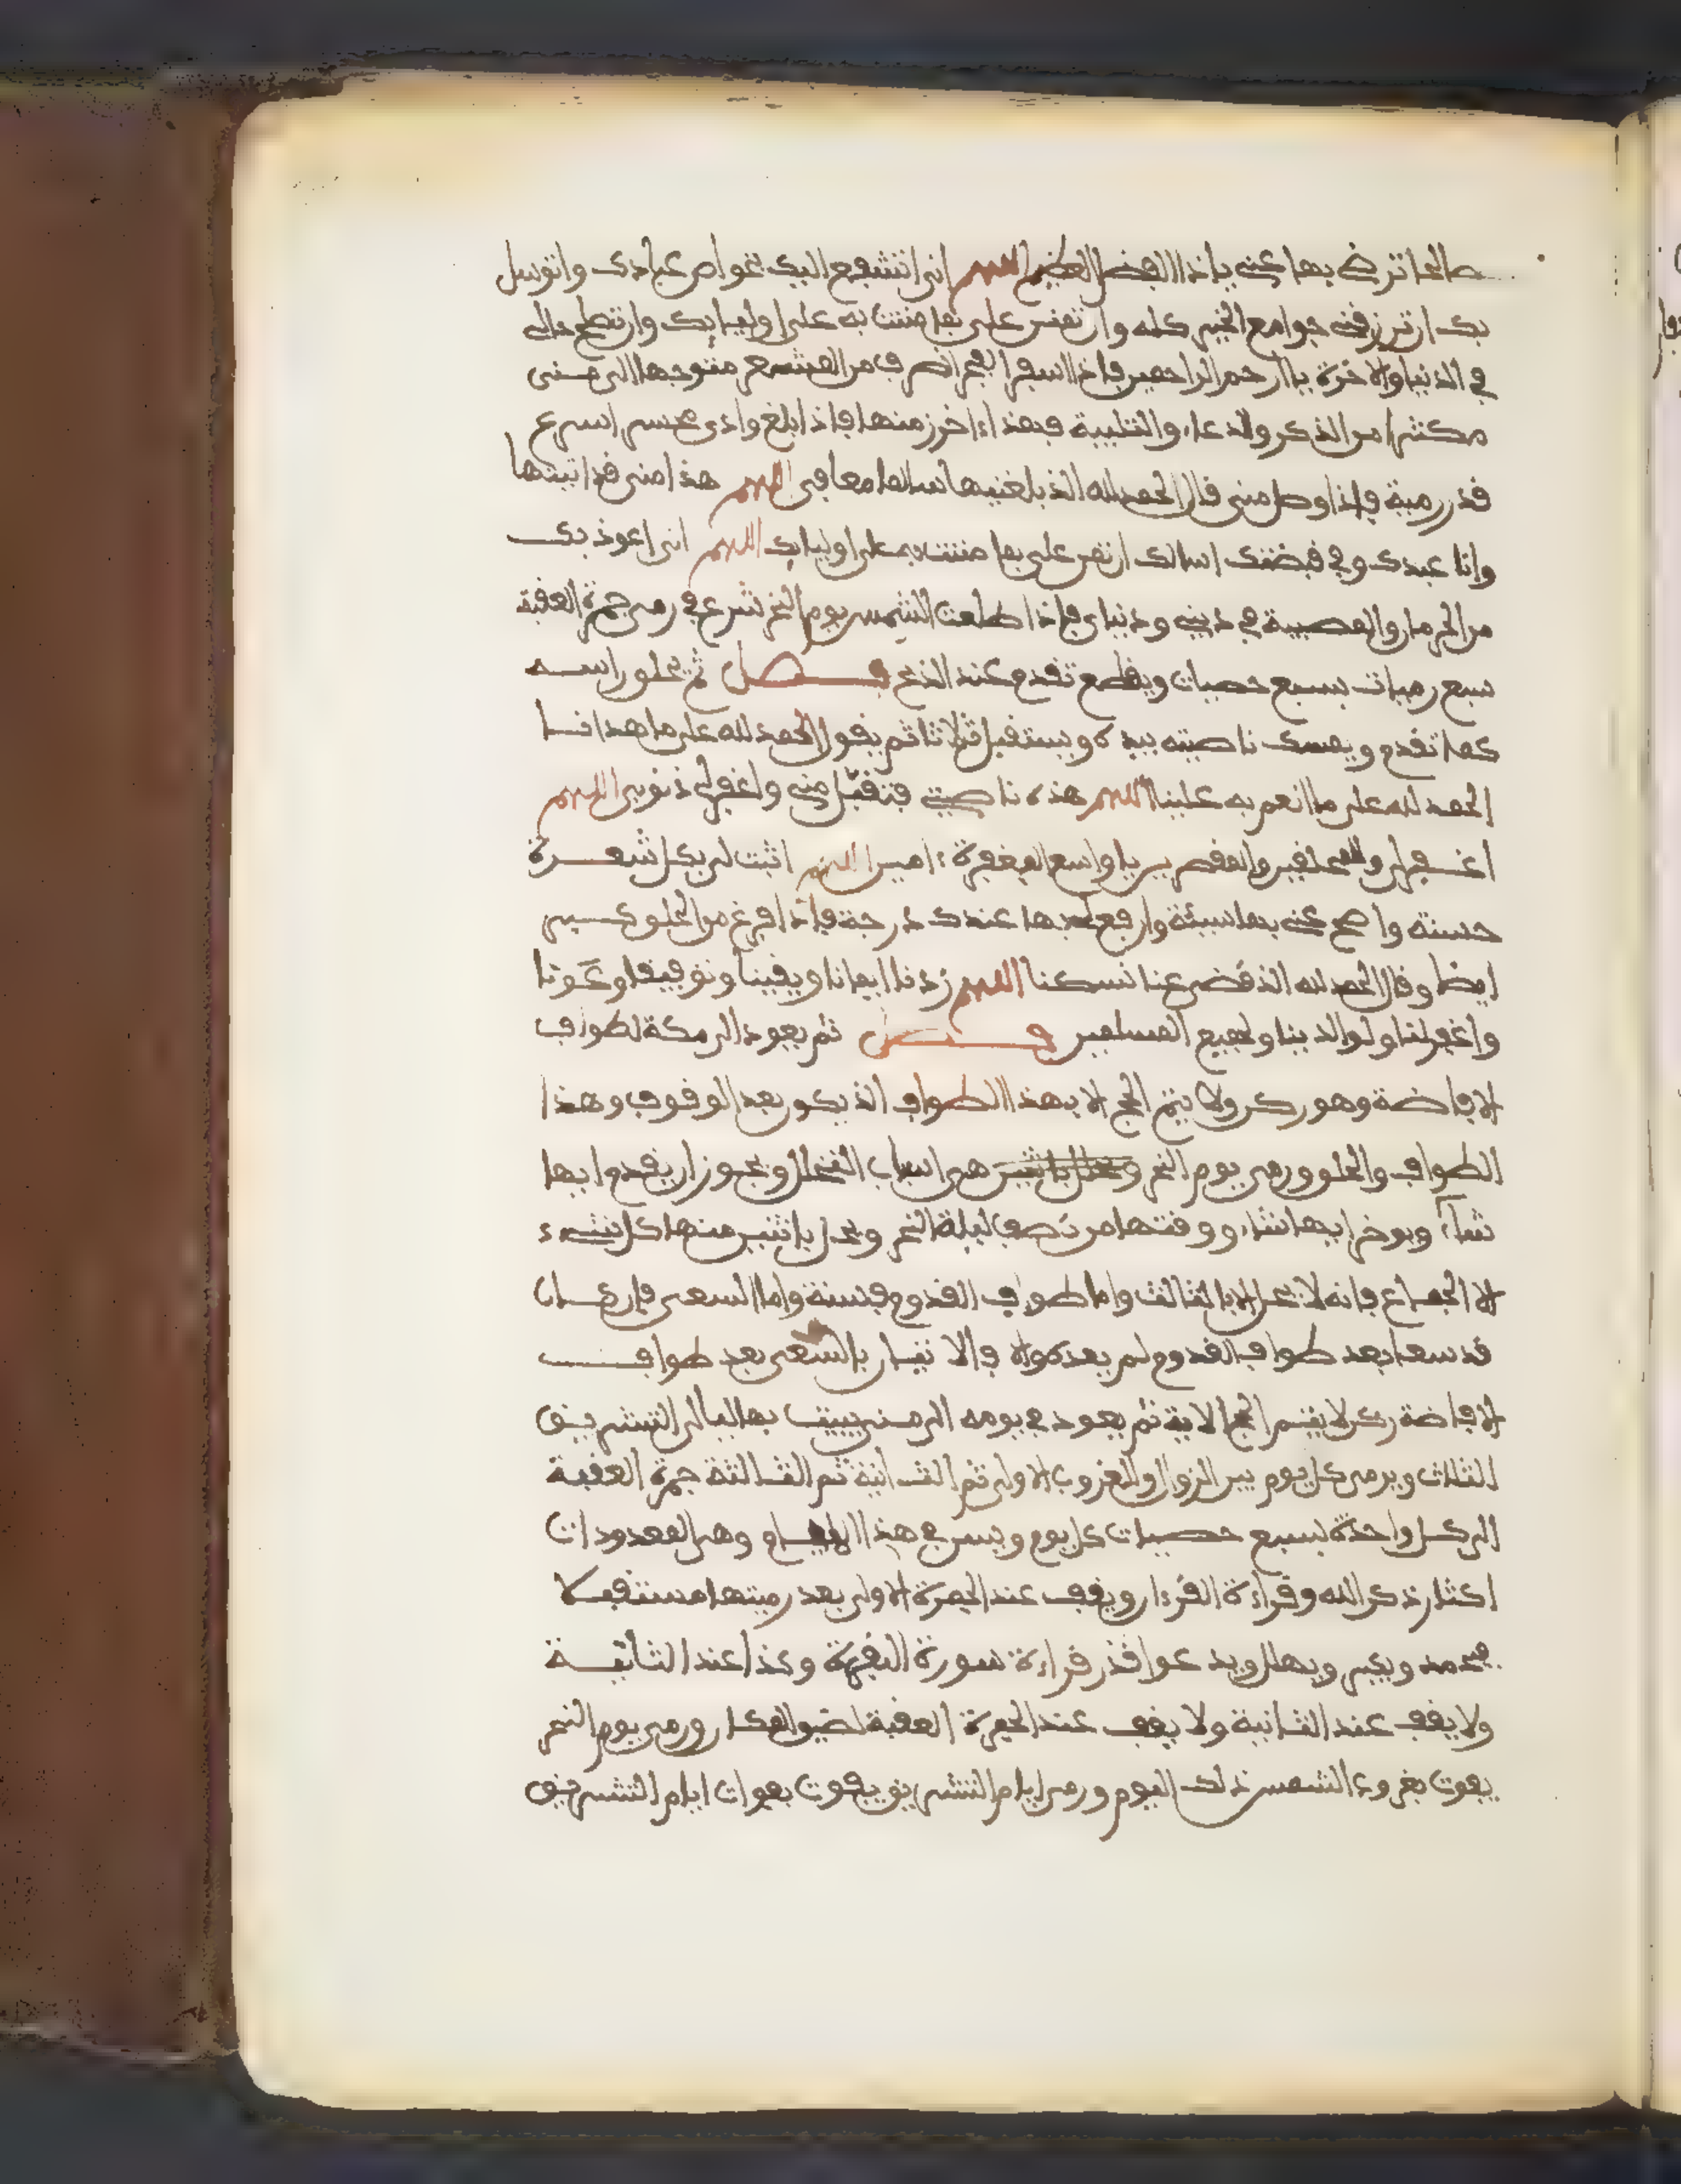 صالحا ترضى بها عني ياذا الفضل العظيم اللهم اني اتشفع اليك بخواص عبادك واتوسل
بك ان ترزقني جوامع الخير كله وان تمن علي بما مننت به على اوليايك وان تصلح حالي
في الدنيا والاخرة يا ارحم الراحمين فاذا اسفر الفجر انصرف من المشعر متوجها الى منى
مكثرا من الذكر والدعاء والتلبية فهذا ءاخر زمنها فاذا بلغ وادى محسر اسرع
قدر رمية فاذا وصل منى قال الحمد لله الذي بلغنيها سالما معافى اللهم هذا منى قد اتيتها
وانا عبدك وفي قبضتك اسالك ان تمن علي بما مننت به على اوليايك اللهم اني اعوذ بك
من الحرمان والمصيبة في ديني ودنياي فاذا طلعت الشمس يوم النحر شرع في رمي جمرة العقبة
سبع رميات بسبع حصيات ويقطع تقدم عند الذبح فصل ثم يحلق راسه
كما تقدم ويمسك ناصيته بيده ويستقبل ثلاثا ثم يقول الحمد لله على ما هدانا
الحمد لله على ما انعم به علينا اللهم هذه ناصيتي فتقبل مني واغفر لي ذنوبي اللهم
اغفر لي وللمحلقين والمقصرين يا واسع المغفرة ءامين اللهم اثبت لي بكل شعرة
حسنة وامح عني بها سيئة وارفع لي بها عندك درجة فاذا فرغ من الحلق كبر
ايضا وقال الحمد لله الذي قضى عنا نسكنا اللهم زدنا ايمانا ويقينا وتوفيقا وعونا
واغفر لنا ولوالدينا ولجميع المسلمين فصل ثم يعود الى مكة لطواف
الافاضة وهو ركن ولا يتم الحج الا بهذا الطواف الذي يكون بعد الوقوف وهذا
الطواف والحلق ورمي يوم النحر هي اسباب التحلل ويجوز ان يقدم ايها
شاء ويوخر ايها شاء ووقتها من نصف ليلة النحر ويحل باثنين منها كل شيء
الا الجماع فانه لا يحل الا بالثالث واما طواف القدوم فسنة واما السعي فان كان
قد سعا بعد طواف القدوم لم يعده والا فالاتيان بالسعي بعد طواف
الافاضة ركن لا يتم الحج الا به ثم يعود في يومه الى منى يبيت بها ليالي التشريق
الثلاث ويرمي كل يوم بين الزوال والغروب الاولى ثم الثانية ثم الثالثة جمرة العقبة
الى كل واحدة بسبع حصيات كل يوم ويسن في هذا الايام وهي المعدودات
اكثار ذكر الله وقراءة القرءان ويقف عند الجمرة الاولى بعد رميتها مستقبلا
يحمد ويكبر ويهلل ويدعوا قدر قراءة سورة البقرة وكذا عند الثانية
ولا يقف عند الثانية ولا يقف عند الجمرة العقبة لضيق المكان ورمي يوم النحر
يفوت بغروب الشمس ذلك اليوم ورمي ايام التشريق يفوت بفوات ايام التشريق